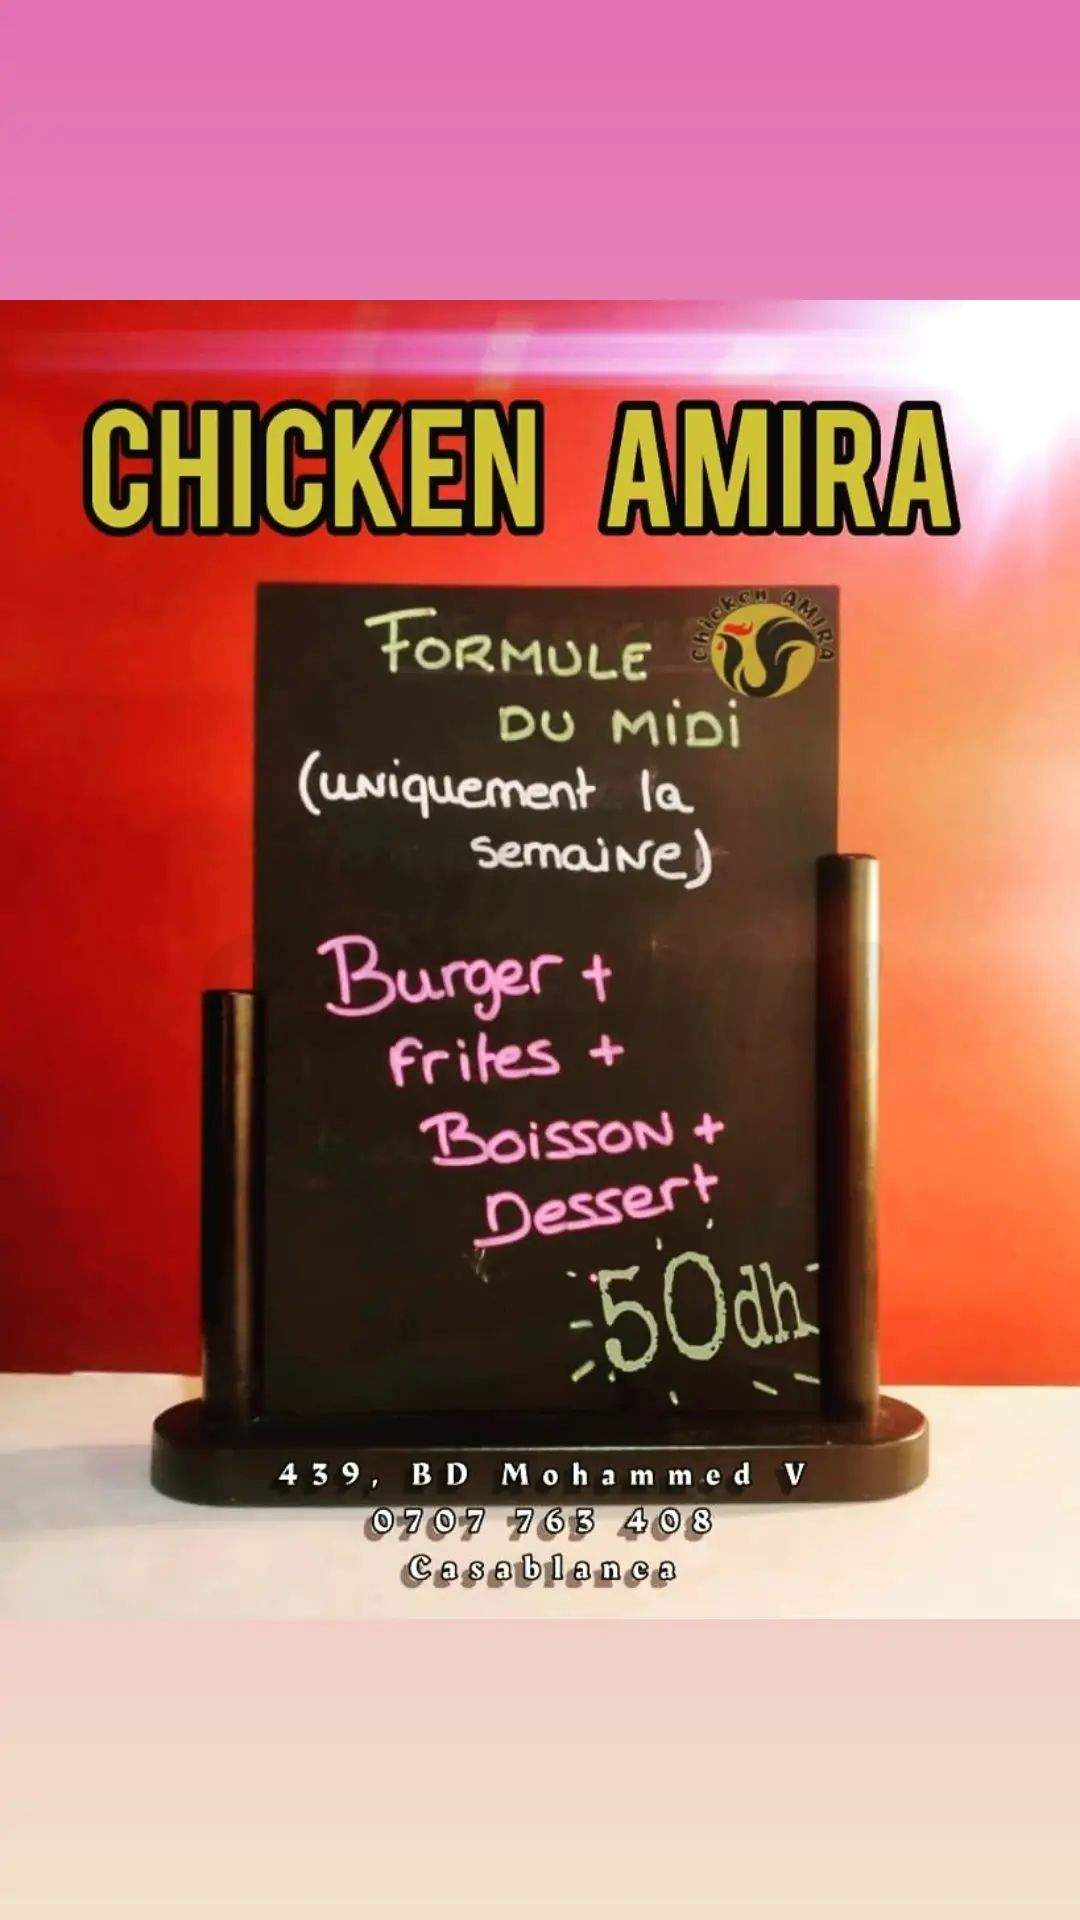 CHICKEN AMIRA
Chicken AMIRA
FORMULE
DU MiDi
(uNiquement la
semaiNe)
Burger +
Frites +
BoissoN +
Dessert
50dh
439, BD Mohammed V
0707 763 408
Casablanca